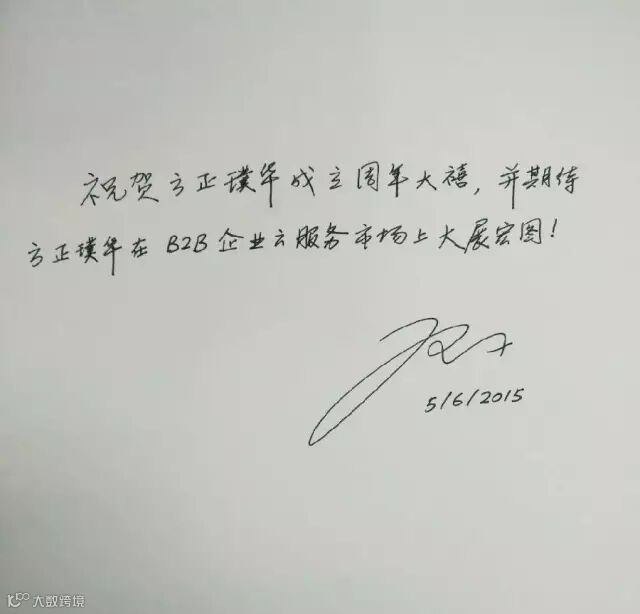 祝贺方正璞华成立周年大禧，并期待
方正璞华在 B2B 企业云服务市场上大展宏图！
5/6/2015
大数跨境